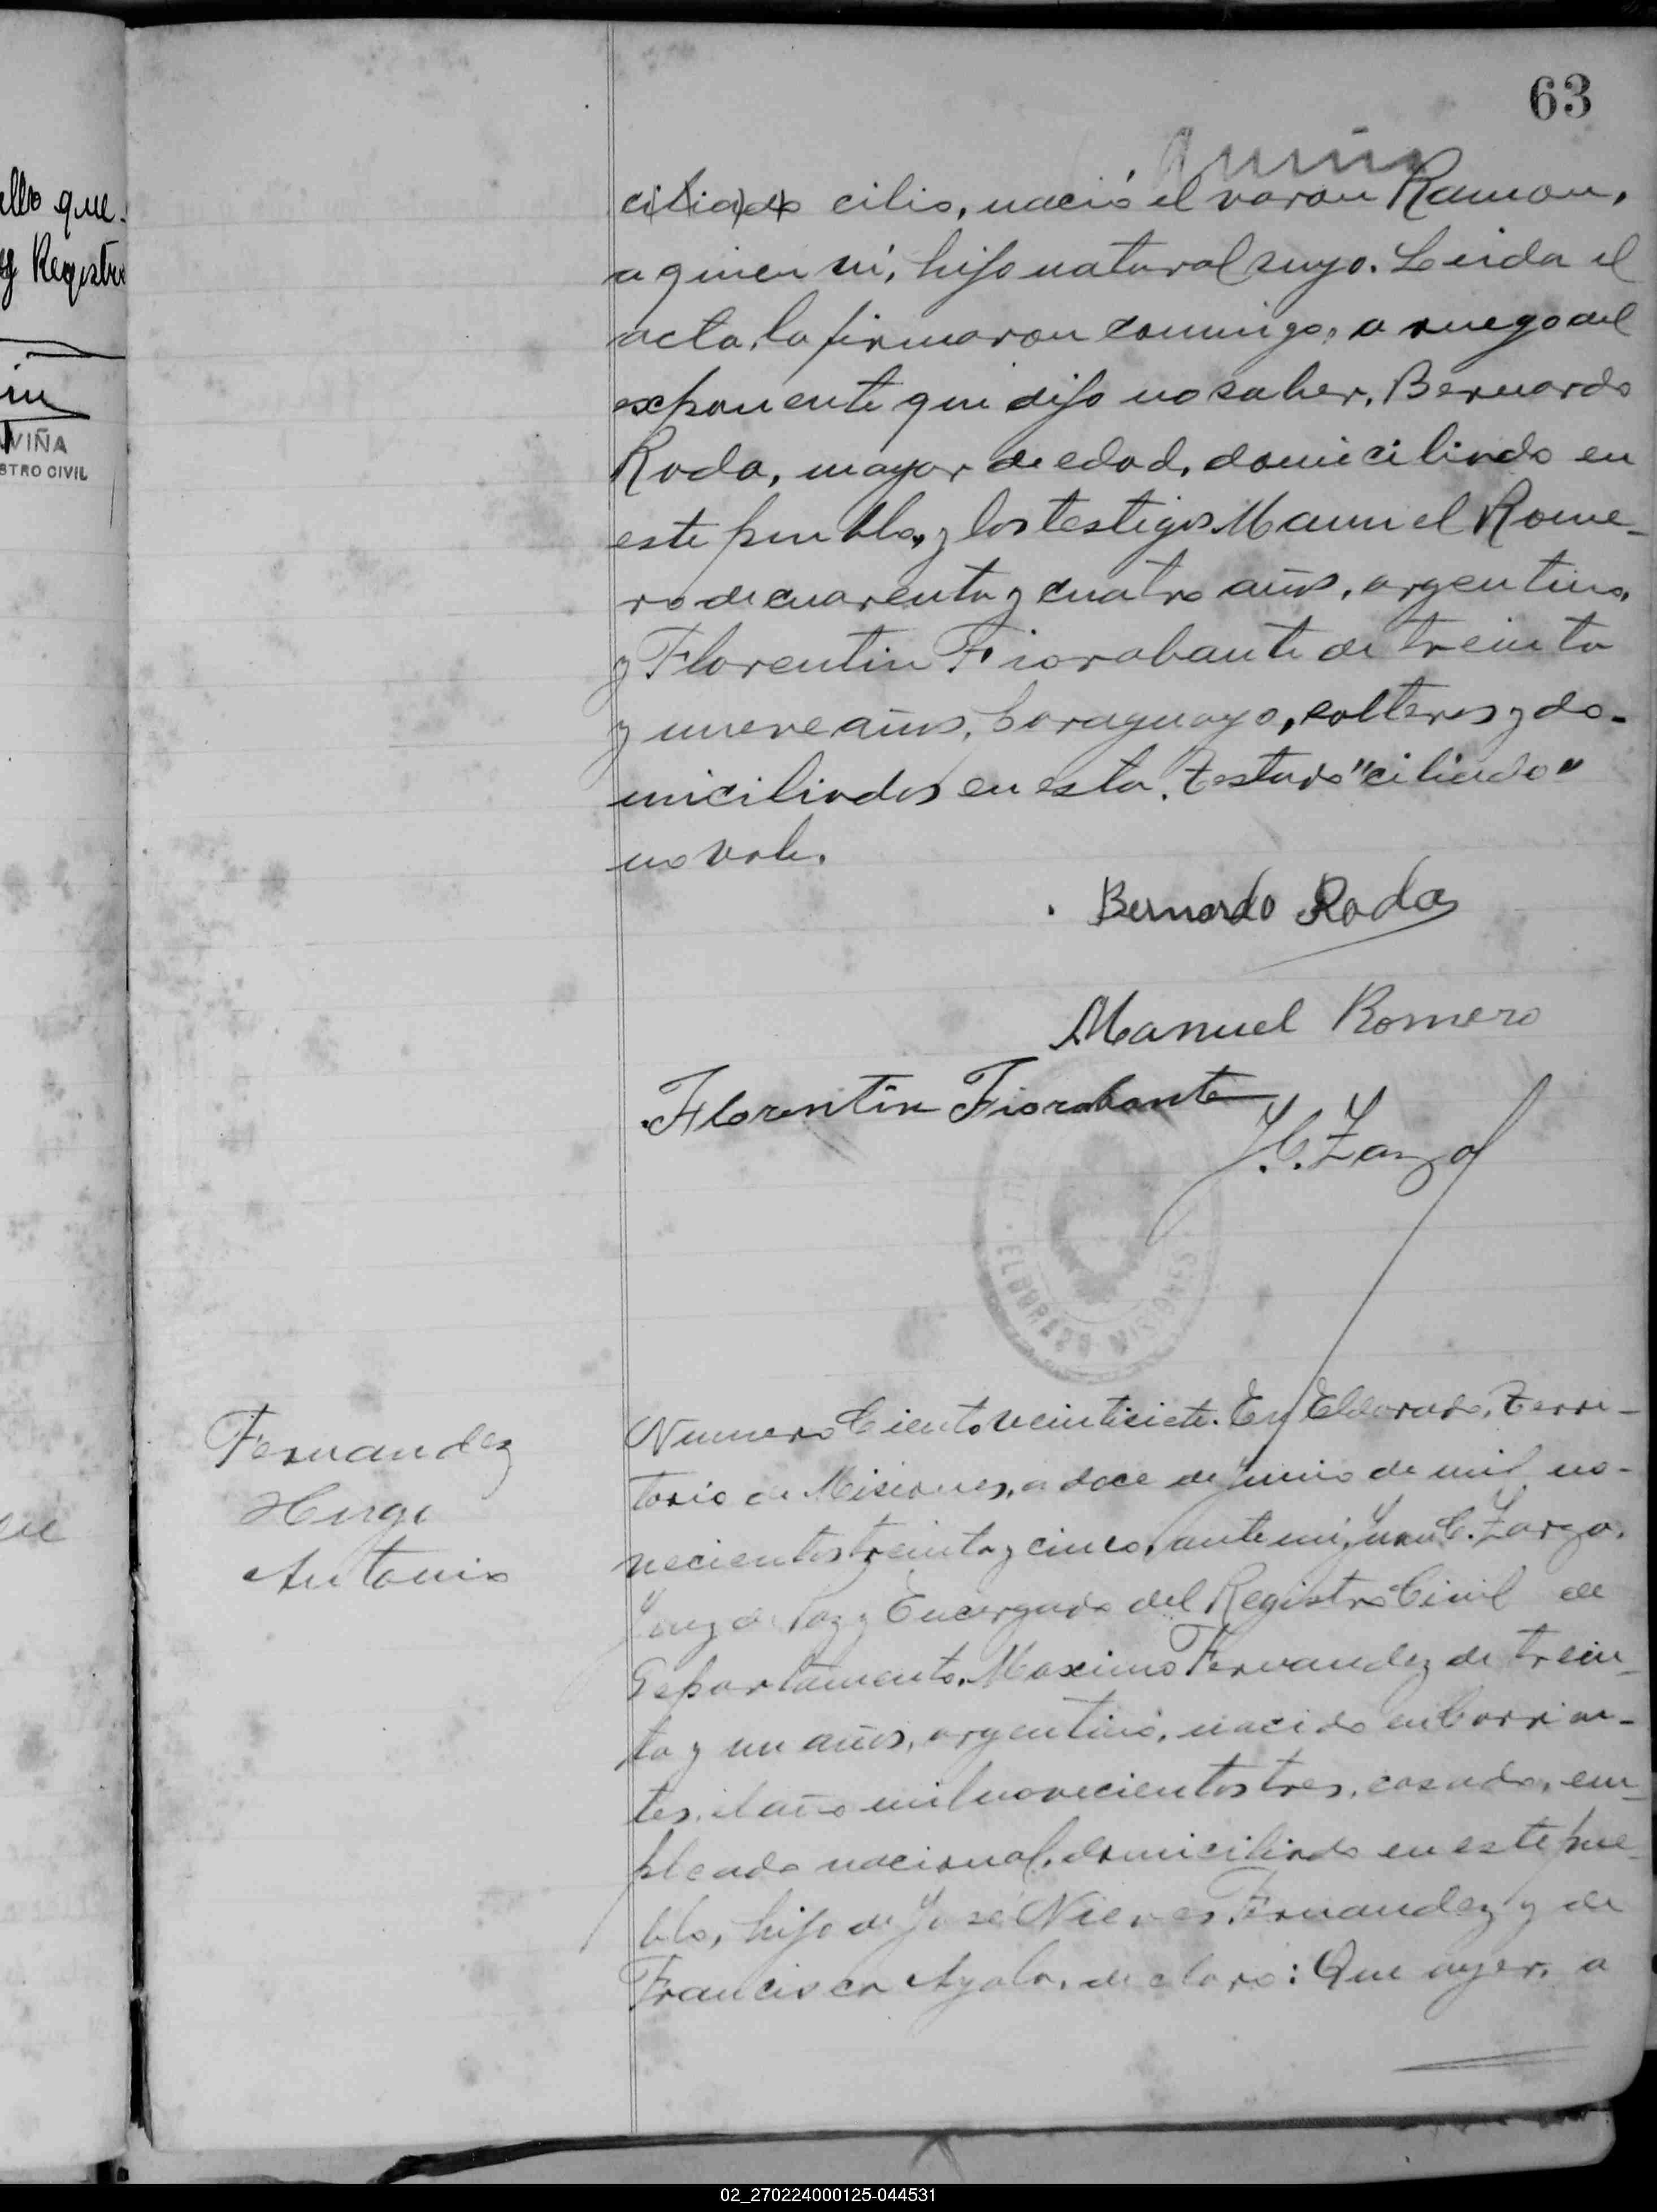 63
Junio
ciliado cilio, nació el varon Ramon,
a quien vi, hijo natural suyo. Leida el
acta, la firmaron conmigo, a ruego del
exponente que dijo no saber, Bernardo
Roda, mayor de edad, domiciliado en
este pueblo, y los testigos Manuel Rome-
ro de cuarenta y cuatro años, argentino,
y Florentin Fiorabante de treinta
y nueve años, paraguayo, solteros y do-
miciliados en esta. Testado "ciliado"
no vale.
Bernardo Roda
Manuel Romero
Florentin Fiorabante
J. C. Zarza
ELDORADO MISIONES
Fernandez
Hugo
Antonio
Numero Ciento veintisiete. En Eldorado, Terri-
torio de Misiones, a doce de Junio de mil no-
vecientos treinta y cinco, ante mi, Juan C. Zarza,
Juez de Paz y Encargado del Registro Civil de
Departamento, Maximo Fernandez de trein-
ta y un años, argentino, nacido en Corrien-
tes, el año mil novecientos tres, casado, em-
pleado nacional, domiciliado en este pue-
blo, hijo de José Nieves Fernandez y de
Francisca Ayala, declaro: Que ayer, a
llo que
y Registro
VIÑA
STRO CIVIL
02_270224000125-044531